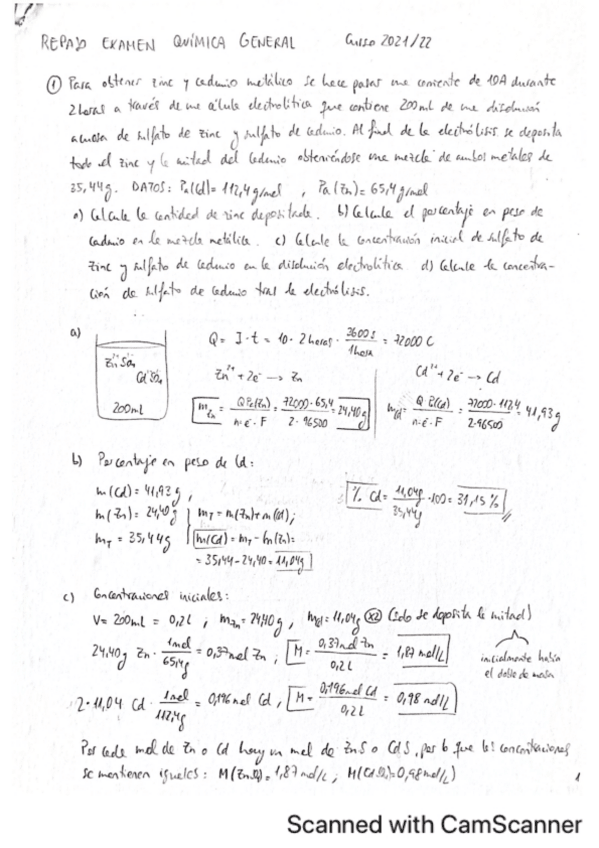 REPASO EXAMEN QUÍMICA GENERAL Curso 2021/22
① Para obtener zinc y cadmio metálico se hace pasar una corriente de 10A durante
2 horas a través de una célula electrolítica que contiene 200 ml de una disolución
acuosa de sulfato de zinc y sulfato de cadmio. Al final de la electrólisis se deposita
todo el zinc y la mitad del cadmio obteniéndose una mezcla de ambos metales de
35,44g. DATOS: Pa(Cd)= 112,4 g/mol , Pa(Zn)= 65,4 g/mol
a) Calcule la cantidad de zinc depositada. b) Calcule el porcentaje en peso de
cadmio en la mezcla metálica. c) Calcule la concentración inicial de sulfato de
zinc y sulfato de cadmio en la disolución electrolítica d) Calcule la concentra-
ción de sulfato de cadmio tras la electrólisis.
a) Q = I·t = 10 · 2 horas · 3600s / 1 hora = 72000 C
Zn²⁺ + 2e⁻ → Zn
Cd²⁺ + 2e⁻ → Cd
200 ml
m Zn = Q Pa(Zn) / n·e⁻·F = 72000 · 65,4 / 2 · 96500 = 24,40 g
m Cd = Q Pa(Cd) / n·e⁻·F = 72000 · 112,4 / 2 · 96500 = 41,93 g
b) Porcentaje en peso de Cd:
m(Cd) = 41,93 g
m(Zn) = 24,40 g
m T = 35,44 g
m T = m(Zn) + m(Cd);
m(Cd) = m T - m(Zn) =
= 35,44 - 24,40 = 11,04g
% Cd = 11,04g / 35,44g · 100 = 31,15 %
c) Concentraciones iniciales:
V = 200 ml = 0,2 L ; m Zn = 24,40 g , m Cd = 11,04g (x2) (solo se deposita la mitad)
inicialmente había
el doble de masa
24,40 g Zn · 1 mol / 65,4g = 0,37 mol Zn ; M = 0,37 mol Zn / 0,2 L = 1,87 mol/L
2 · 11,04 Cd · 1 mol / 112,4g = 0,196 mol Cd , M = 0,196 mol Cd / 0,2 L = 0,98 mol/L
Por cada mol de Zn o Cd hay un mol de ZnS o CdS, por lo que las concentraciones
se mantienen iguales: = 1,87 mol/L ; = 0,98 mol/L)
1
Scanned with CamScanner